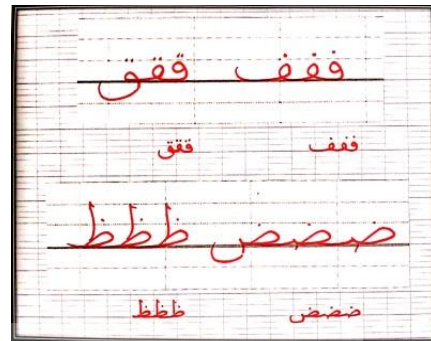 ففف ققق
ففف ققق
ضضض ظظظ
ضضض ظظظ